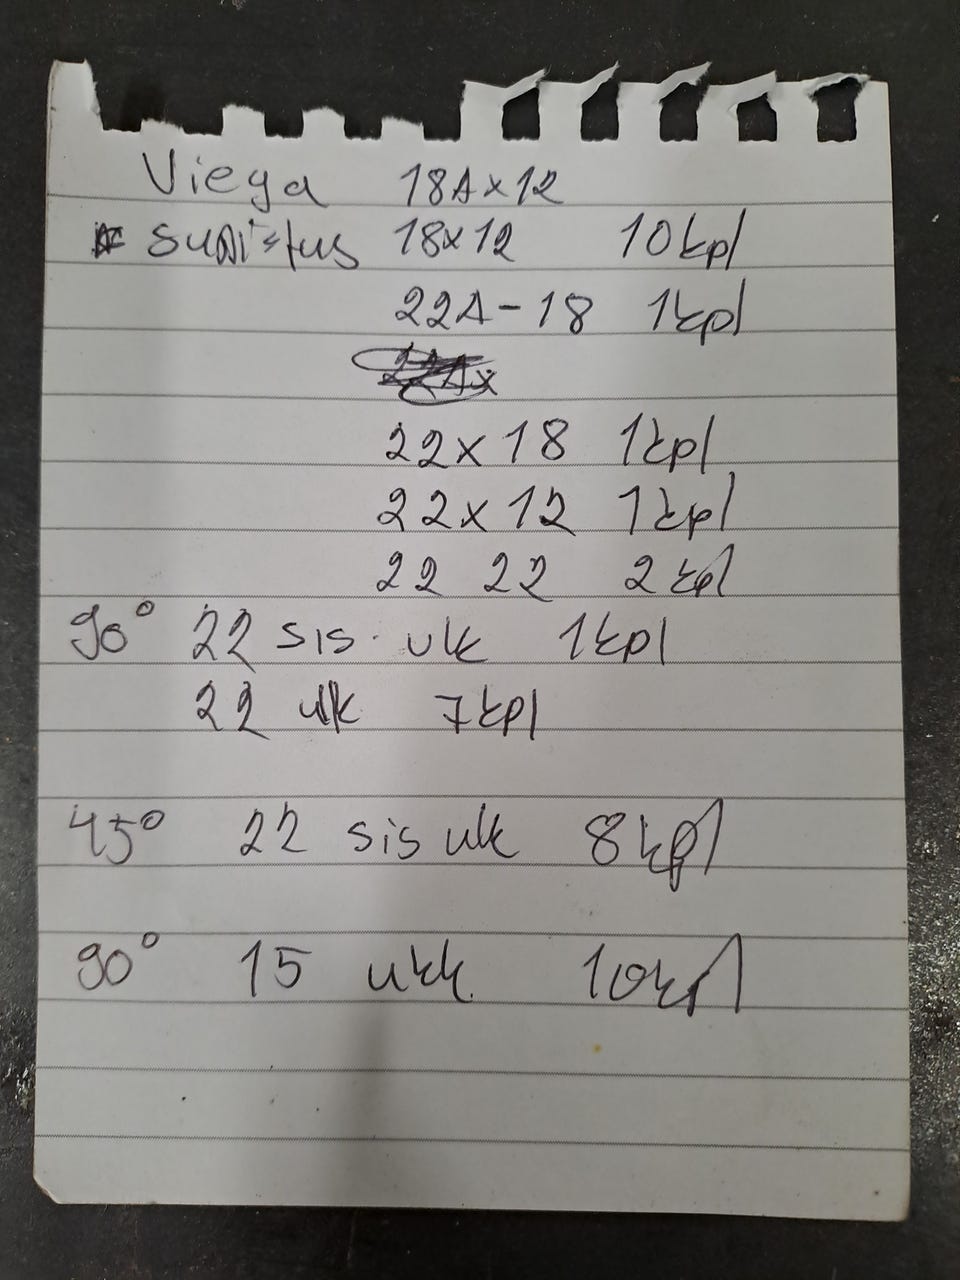 Viega 18A x 12
supistus 18x12 10 kpl
22A - 18 1 kpl
22 x 18 1 kpl
22 x 12 1 kpl
22 22 2 kpl
90° 22 sis. ulk 1 kpl
22 ulk. 7 kpl
45° 22 sis ulk 8 kpl
90° 15 ukk. 10 kpl